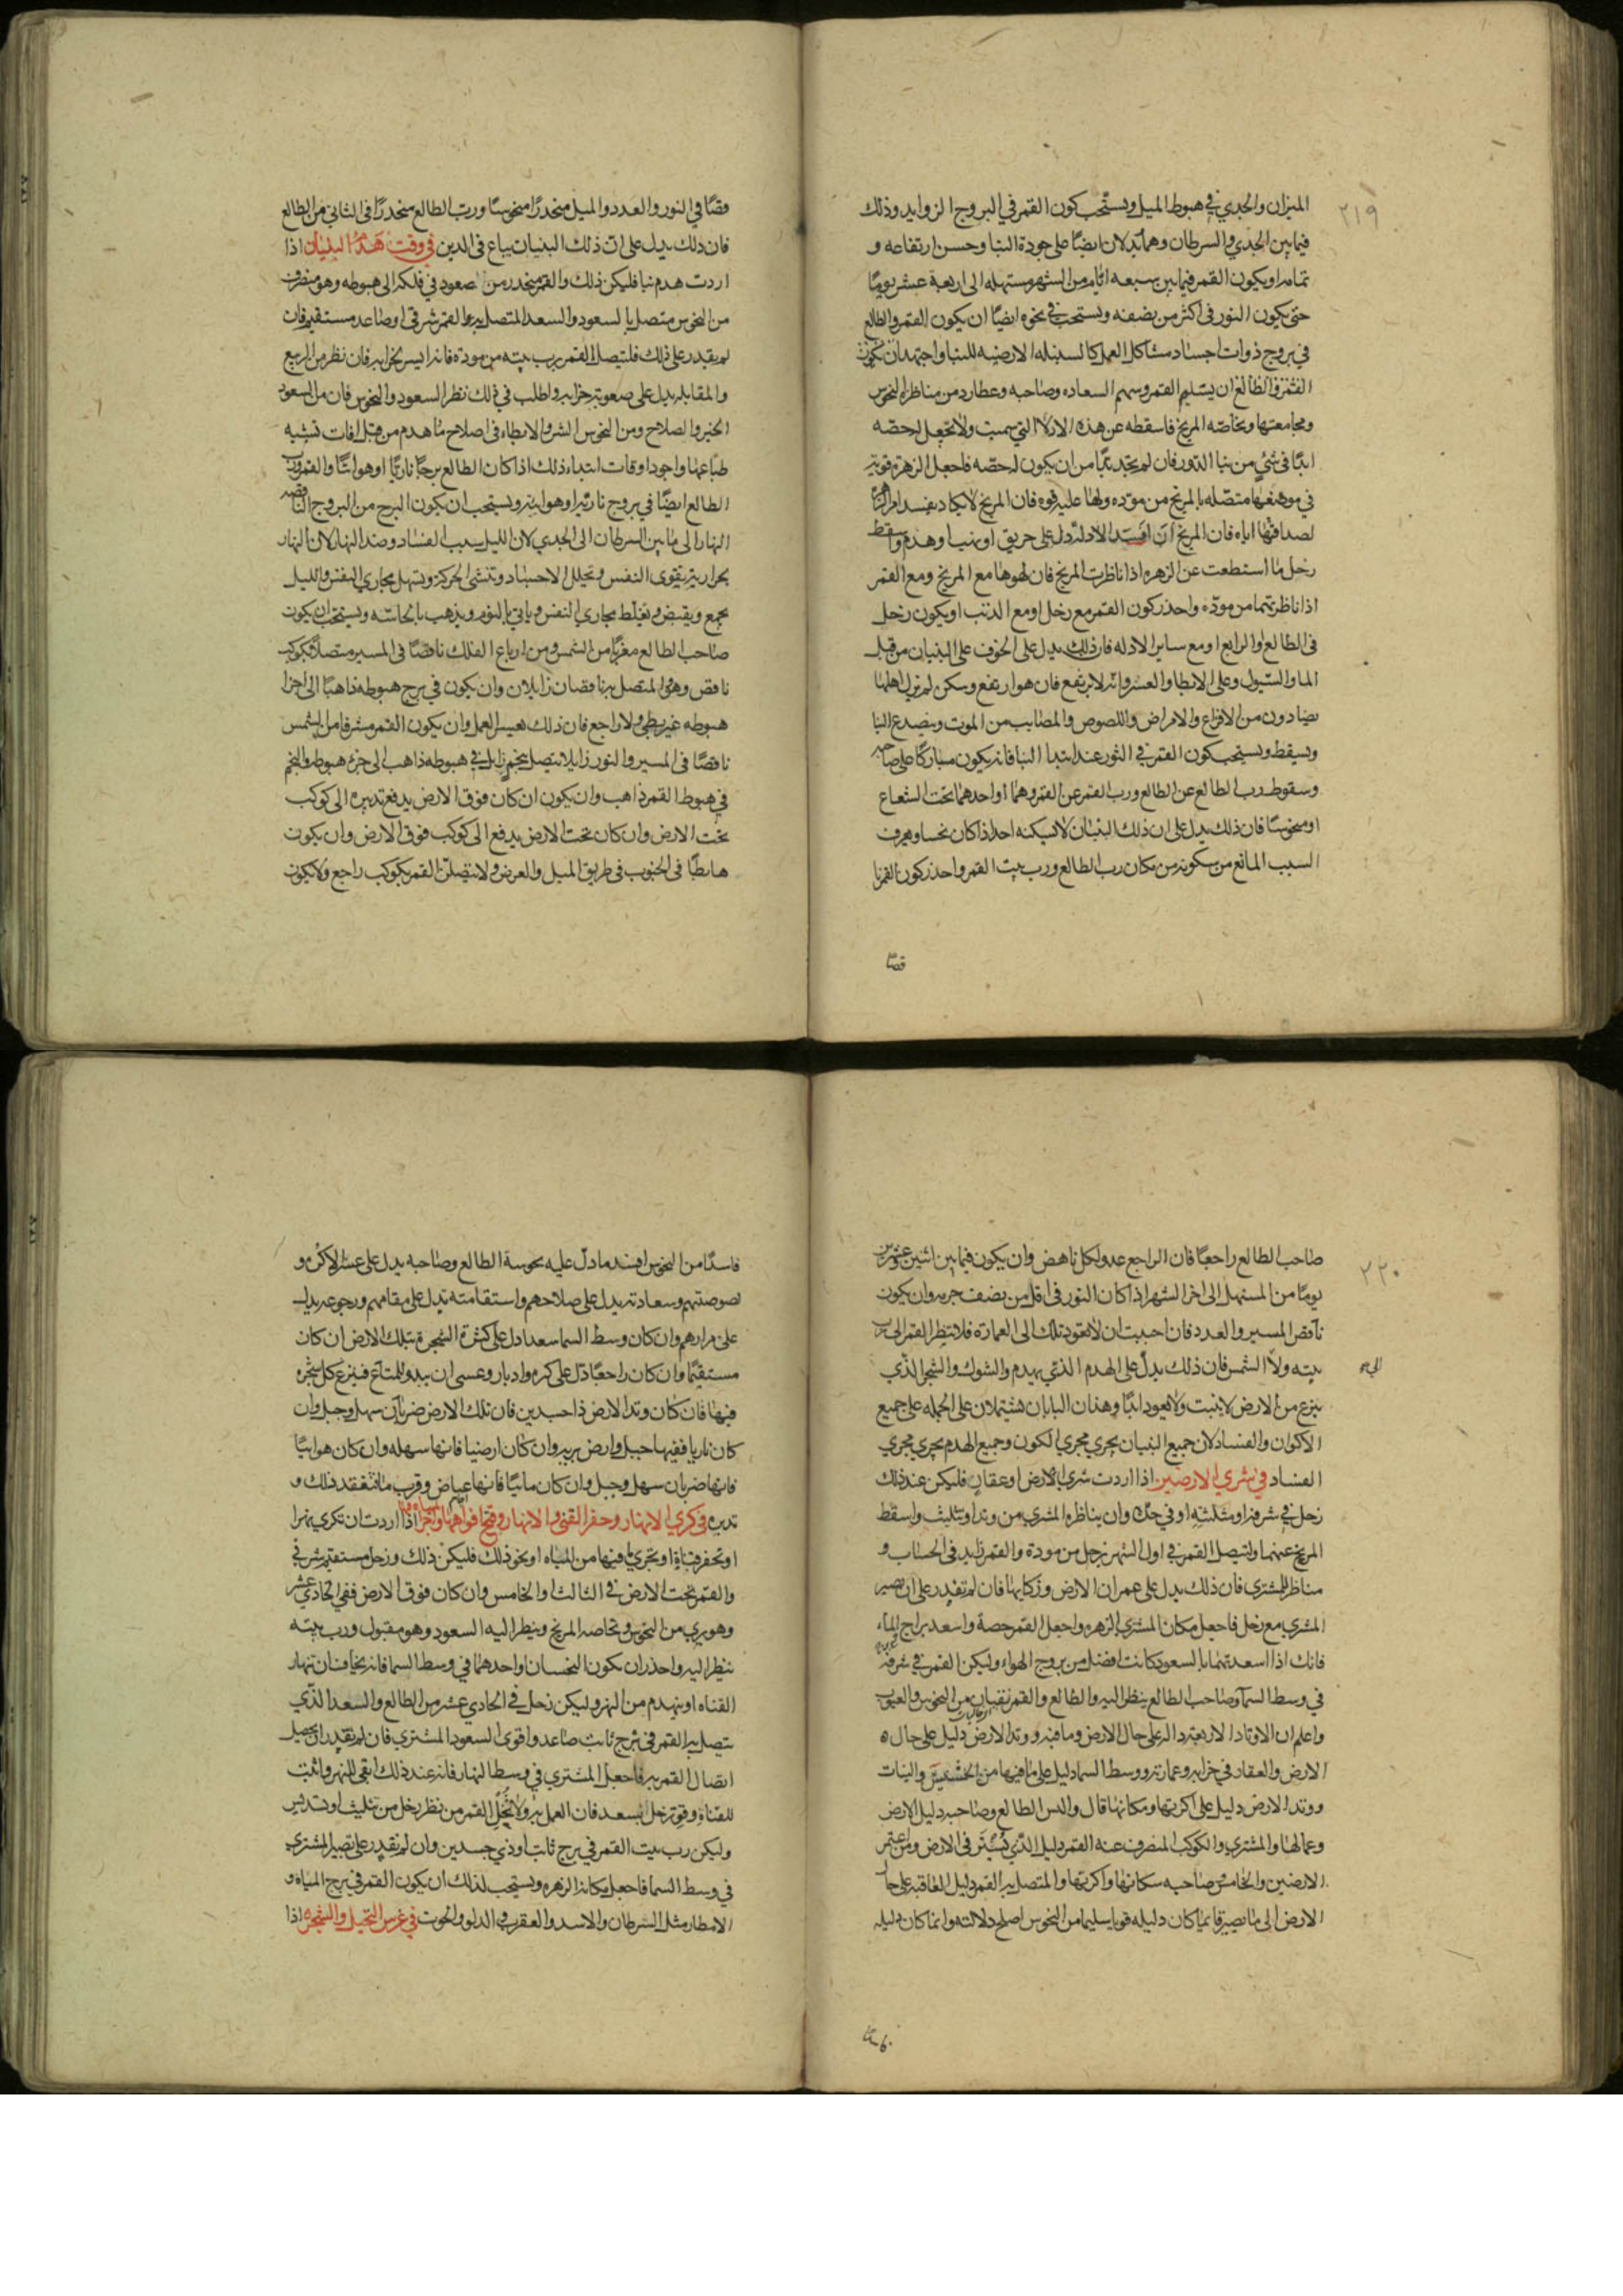 ٢١٩
الميزان والجدي في هبوط الميل ويستحب كون القمر في البروج الزوايد وذلك
فيما بين الجدي والسرطان وهما يدلان ايضا على جودة البنا وحسن ارتفاعه و
تمامه او يكون القمر فيما بين سبعه ايام من الشهر ومستهله الى اربعة عشر يوما
حتى يكون النور في اكثر من نصفه ويستحب في نحوه ايضا ان يكون القمر والطالع
في بروج ذوات اجساد مشاكل العمل كالسنبله الارضيه للبنا واجتهد ان يكون
القمر والطالع ان يسليم القمر وسهم السعاده وصاحبه وعطارد من مناظرة النحوس
ومجامعتها وبخاصه المريخ فاسقطه عن هذه الادلا التي سميت ولا تجعل له حصه
ابدا في شئ من بنا الدور فان لم تجد بدا من ان يكون له حصه فاجعل الزهرة قوية
في موضعها متصله بالمريخ من موده ولها عليه قوه فان المريخ لا يكاد يفسد امر الزهرة
لصداقتها اياه فان المريخ ان افسد الادلة دل على حريق او نبيا وهدم واسقط
زحل ما استطعت عن الزهره اذا ناظرت المريخ فان لهوها مع المريخ ومع القمر
اذا ناظرتهما من موده واحذر كون القمر مع زحل او مع الذنب او يكون زحل
في الطالع او الرابع او مع ساير الادله فان ذلك يدل على الخوف على البنيان من قبل
الما والسيول وعلى الابطا والعسر وانه لا يرتفع فان هو ارتفع وسكن لم يزل اهلها
يصادون من الافزاع والامراض واللصوص والمصايب من الموت وينصدع البنا
ويسقط ويستحب كون القمر في الثور عند ابتدا البنا فانه يكون مباركا على صاحبه
وسقوط رب الطالع عن الطالع ورب القمر عن القمر وهما او احدهما تحت الشعاع
او منحوسا فان ذلك يدل على ان ذلك البنيان لا يسكنه احد اذا كان نحسا ويعرف
السبب المانع من سكونه من مكان رب الطالع ورب بيت القمر واحذر كون القمر نا
قصا
قصا في النور والعدد والميل منحدرا منحوسا ورب الطالع منحدرا في الثاني من الطالع
فان ذلك يدل على ان ذلك البنيان يباع في الدين في وقت هدم البنيان اذا
اردت هدم بنا فليكن ذلك والقمر منحدر من صعود في فلكه الى هبوطه وهو منصرف
من النحوس متصل بالسعود والسعد المتصل به القمر شرقي او صاعد مستقيم فان
لم يقدر على ذلك فليتصل القمر برب بيته من مودة فانه ايسر لخرابه فان نظر من الربيع
والمقابله يدل على صعوبة خرابه واطلب في ذلك نظر السعود والنحوس فان من السعود
الخير والصلاح ومن النحوس الشر والابطاء في اصلاح ما هدم من قبل افات تشبه
طباعها واجود اوقات ابتداء ذلك اذا كان الطالع برجا ناريا او هوائيا والقمر ورب
الطالع ايضا في بروج نارية او هوايية ويستحب ان يكون البرج من البروج الناقصه
النهار الى ما بين السرطان الى الجدي لان الليل سبب الفساد وضد النهار لان النهار
بحرارته يقوى النفس ويحلل الاجساد وتنشى الحركة ويسهل مجاري النفس والليل
يجمع ويقبض ويغلظ مجاري النفس وياتي بالنور ويذهب بالحاسه ويستحب ان يكون
صاحب الطالع مغربا من الشمس ومن ارباع الفلك ناقصا في المسير متصلا بكوكب
ناقص وهو والمتصل به ناقصان زايلان وان يكون في برج هبوطه ذاهبا الى اجزا
هبوطه غير بطي ولا راجع فان ذلك يعسر العمل وان يكون القمر مشرقا من الشمس
ناقصا في المسير والنور زايلا يتصل بنجم زايل في هبوطه ذاهب الى جزء هبوطه والنجم
في هبوط القمر ذاهب وان يكون ان كان فوق الارض يدفع تدبيره الى كوكب
تحت الارض وان كان تحت الارض يدفع الى كوكب فوق الارض وان يكون
هابطا في الجنوب في طريق الميل والعرض ولا يتصلن القمر بكوكب راجع ولا يكون
٢٢٠
صاحب الطالع راجعا فان الراجع عدو لكل ناهض وان يكون فيما بين اثنين وعشرين
يوما من المستهل الى اخر الشهر اذا كان النور في اقل من نصف جرمه وان يكون
ناقص المسير والعدد فان احببت ان لا يعود تلك الى العمارة فلا ينظر القمر الى رب
بيته ولا الشمس فان ذلك يدل على الهدم الذي يهدم والشوك والشجر الذي
ينزع من الارض لا ينبت ولا يعود ابدا وهذان البابان يشتملان على الجمله على جميع
الاكوان والفساد لان جميع البنيان يجري مجري الكون وجميع الهدم يجري مجري
الفساد في شري الارضين اذا اردت شري الارض او عقار فليكن عند ذلك
زحل في شرفه او مثلثه او في حده وان يناظره المشري من وتد او تثليث واسقط
المريخ عنهما وليتصل القمر في اول الشهر بزحل من مودة والقمر زايد في الحساب و
مناظر للمشتري فان ذلك يدل على عمران الارض وزكايها فان لم تقدر على ان تصير
المشري مع زحل فاجعل مكان المشتري الزهره واجعل القمر حصة واسعد براج الماء
فانك اذا اسعدتهما بالسعود كانت افضل من بروج الهواء وليكن القمر في شرفه
في وسط السما وصاحب الطالع ينظر اليه والطالع والقمر نقيان من النحوس والعيوب
واعلم ان الاوتاد الاربعة دالة على حال الارض وما فيها ووتد الارض دليل على حال
الارض والعقار في خرابه وعمارته ووسط السما دليل على ما فيها من الحشيش والنبات
ووتد الارض دليل على اكرتها ومكانها قال واليس الطالع وصاحبه دليل الارض
وعمالها والمشتري والكوكب المنصرف عنه القمر دليل الذي يشتر في الارض ومن اعتمر
الارضين والخامس صاحبه سكانها واكرتها والمتصل به القمر دليل العاقبة على حال
الارض الى ما تصير فايما كان دليله قويا سليما من النحوس اصلح دلالته وانما كان دليله
فاسدا من النحوس افسد ما دل عليه نحوسة الطالع وصاحبه يدل على عسر الاكرة و
لصوصتهم وسعادته يدل على صلاحهم واستقامته يدل على مقامهم ورجوعه يدل
على مرارهم وان كان وسط السما سعدا دل على كثرة الشجر في تلك الارض ان كان
مستقيما وان كان راجعا دل على كره وادبار وعسى ان يبدو للمبتاع فينزع كل شجره
فيها فان كان وتد الارض ذا جسدين فان تلك الارض ضربان سهل وجبل وان
كان ناريا ففيها جبل وارض بريه وان كان ارضيا فانها سهله وان كان هوائيا
فانها ضربان سهل وجبل وان كان مائيا فانها غياض وقرب ما فتفقد ذلك و
تدبره في كري الانهار وحفر القني والانهار وفتح افواهها واجراء الماء فيها اذا اردت ان تكري نهرا
او تحفر قناة او تجري ما فيها من المياه او نحو ذلك فليكن ذلك وزحل مستقيم شرقي
والقمر تحت الارض في الثالث او الخامس وان كان فوق الارض ففي الحادي عشر
وهو بري من النحوس وبخاصه المريخ وينظر اليه السعود وهو مقبول ورب بيته
ينظر اليه واحذر ان يكون النحسان او احدهما في وسط السما فانه يخاف ان تنهار
القناه او ينهدم من النهر وليكن زحل في الحادي عشر من الطالع والسعد الذي
يتصل به القمر في برج ثابت صاعد واقوى السعود المشتري فان لم تقدر ان يجعل
اتصال القمر به فاجعل المشتري في وسط النهار فانه عند ذلك ابقى للنهر واثبت
للقناة وقوة زحل بسعد فان العمل به ولا تخل القمر من نظر زحل من تثليث او تسديس
وليكن رب بيت القمر في برج ثابت او ذي جسدين وان لم تقدر على تصير المشتري
في وسط السما فاجعل مكانه الزهره ويستحب لذلك ان يكون القمر في برج المياه و
الامطار مثل السرطان والاسد والعقرب والدلو والحوت في غرس النخيل والشجر اذا